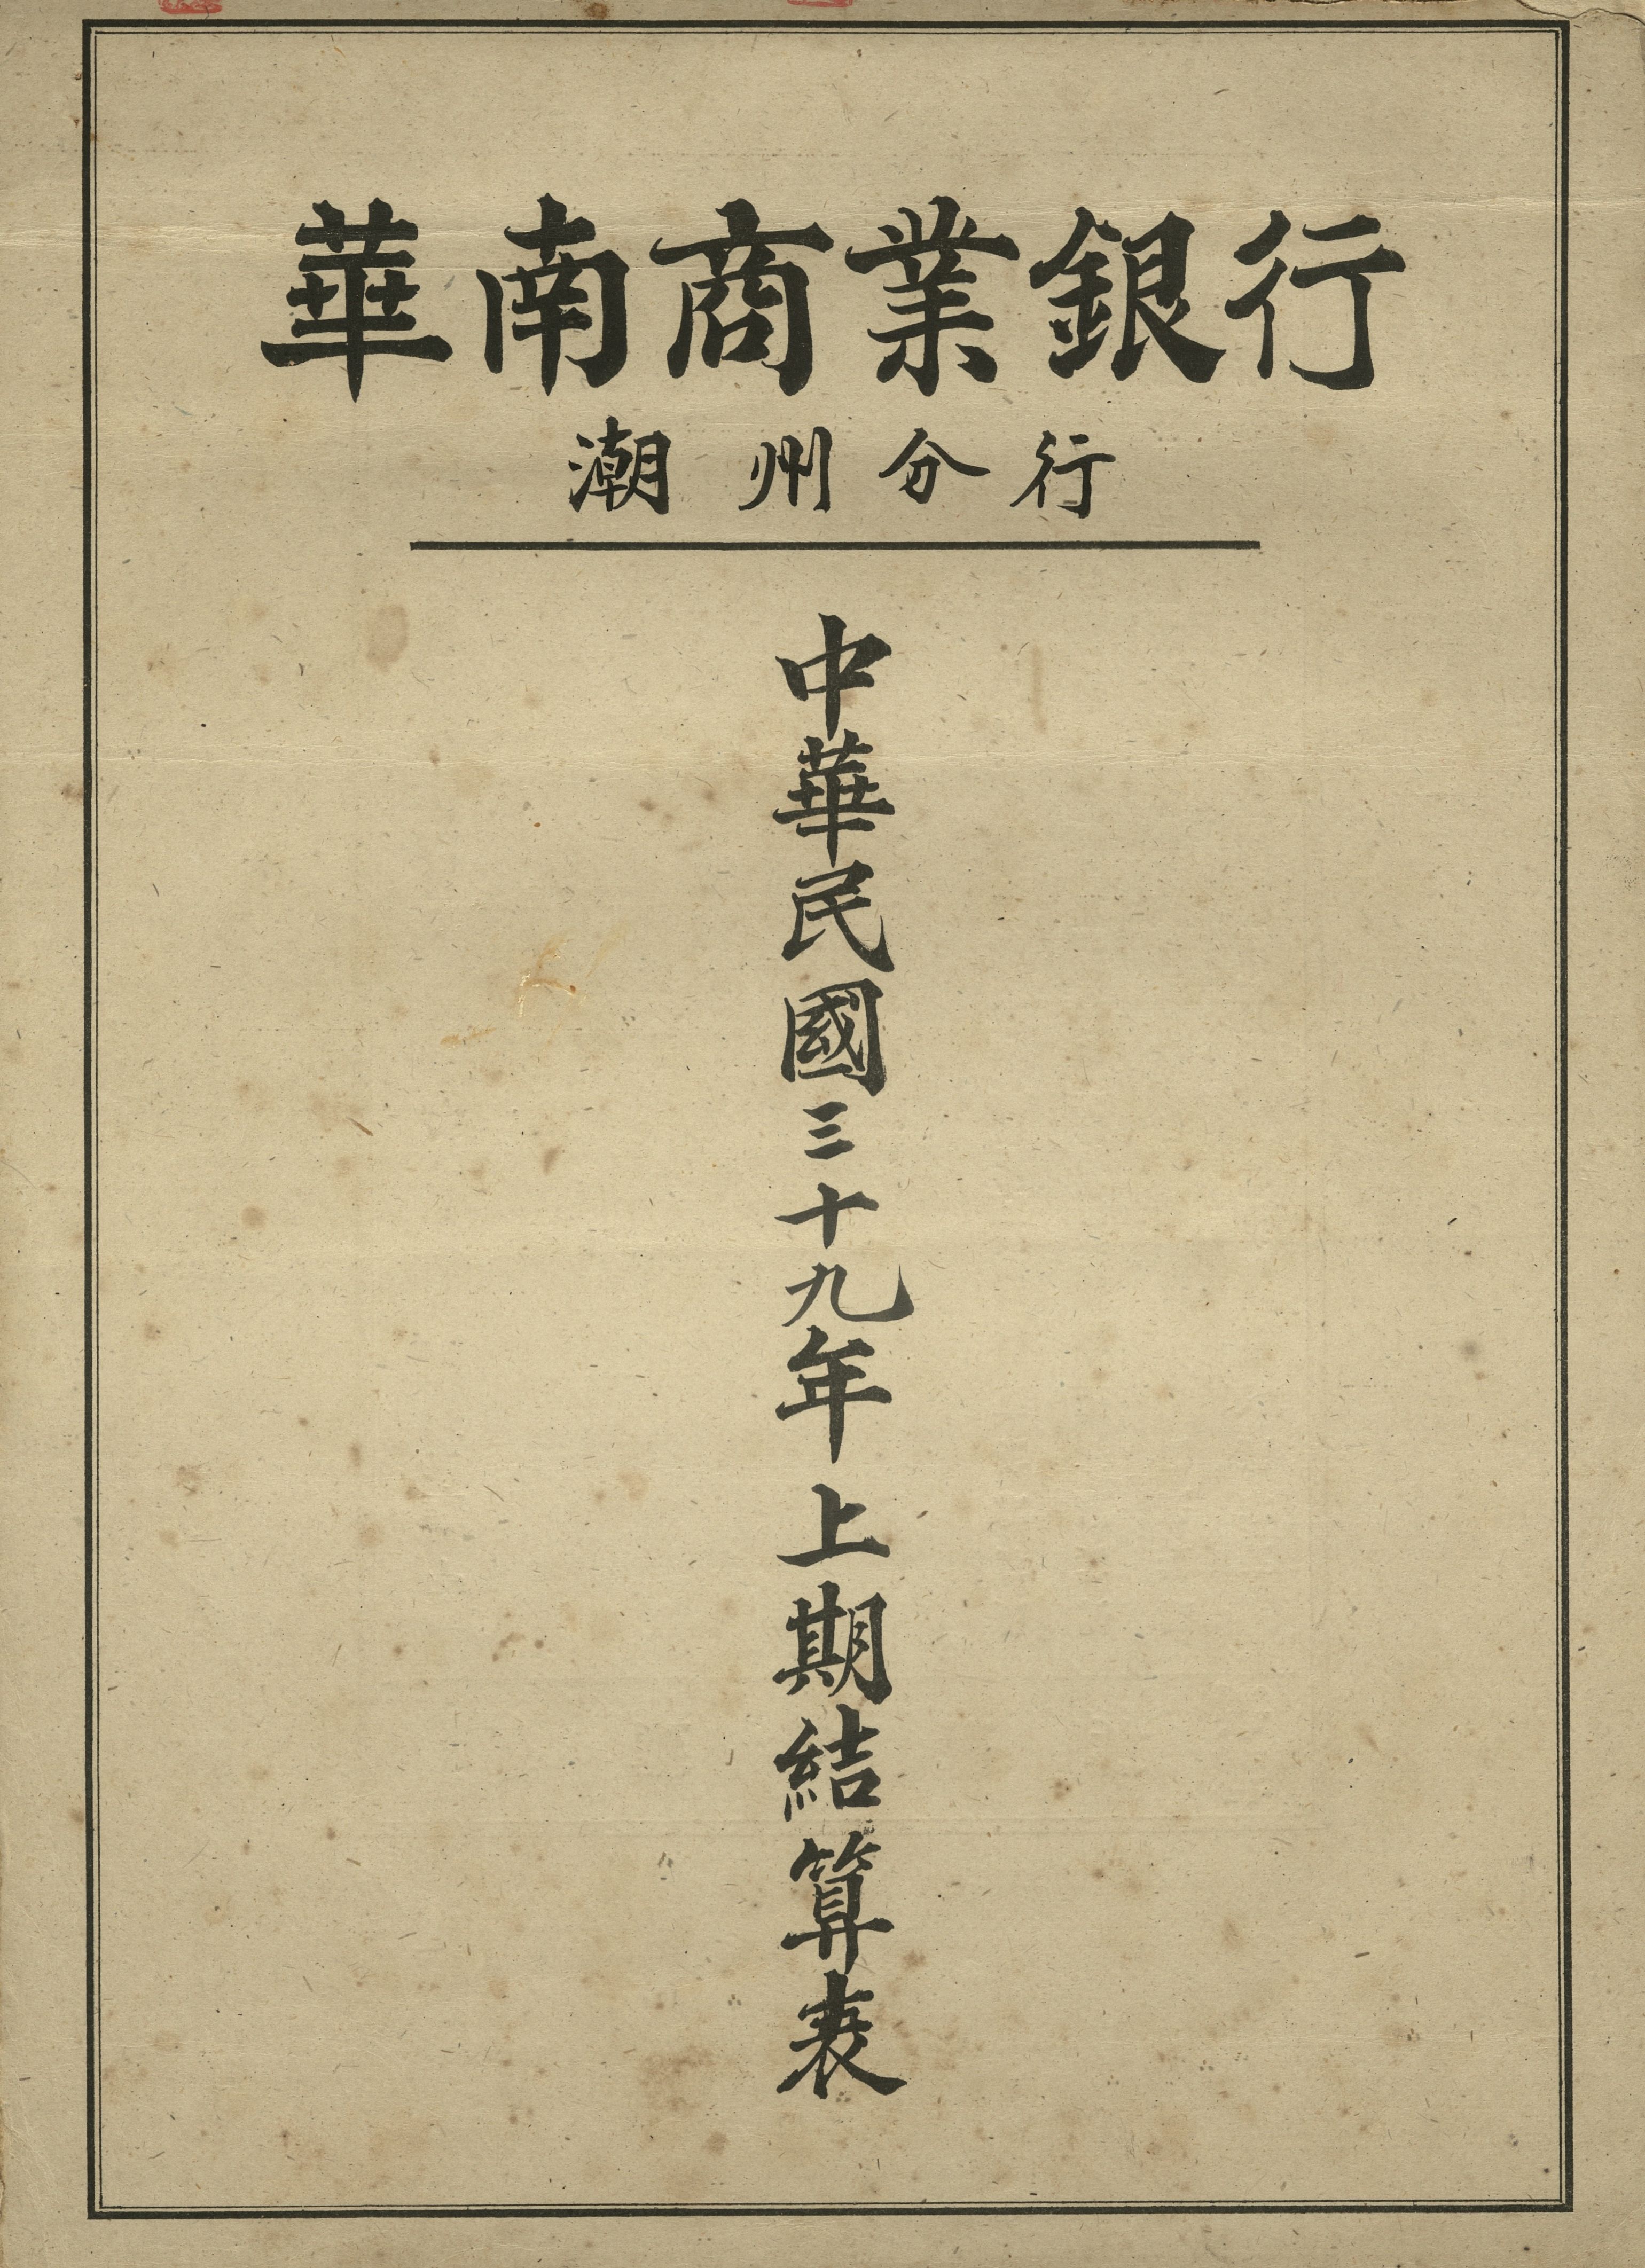 華南商業銀行
潮州分行
中華民國三十九年上期結算表